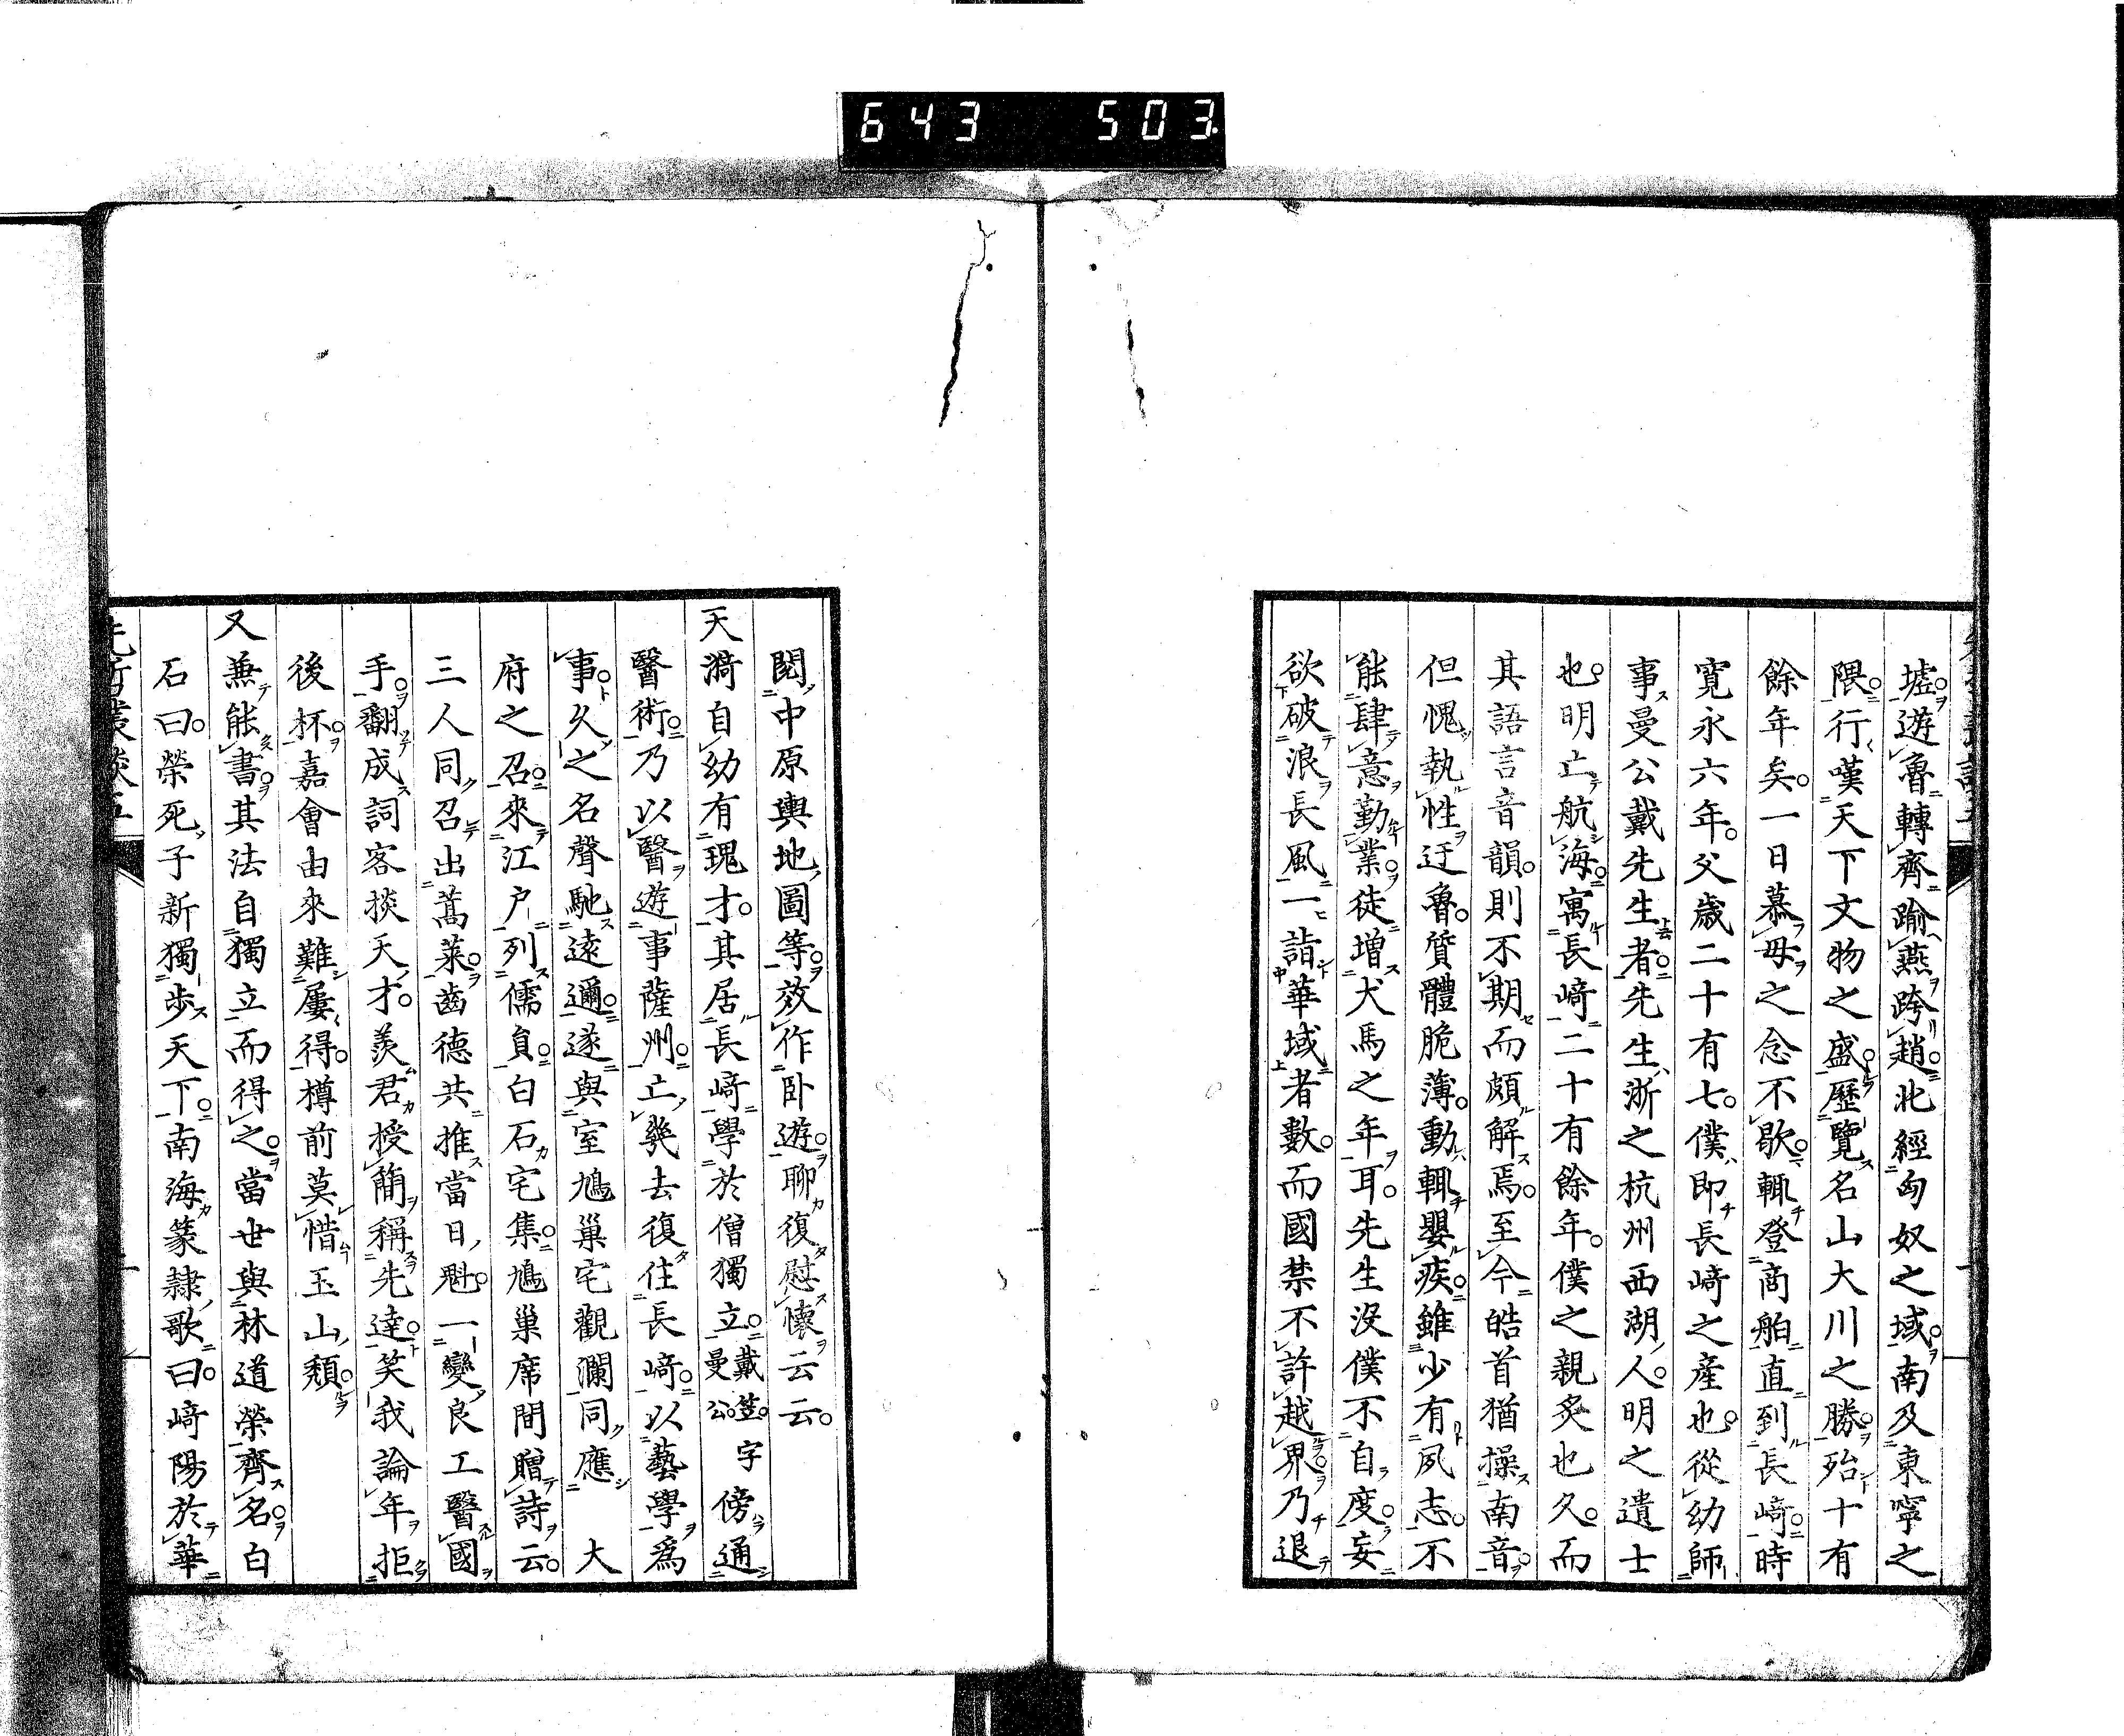 643 503
墟。遊魯轉齊踰燕跨趙。北經匈奴之域。南及東寧之
隈。行嘆天下文物之盛。歷覽名山大川之勝。殆十有
餘年矣。一日慕母之念不歇。輒登商舶直到長崎。時
寛永六年。父歲二十有七。僕即長崎之產也。從幼師
事曼公戴先生者。先生浙之杭州西湖人。明之遺士
也。明亡航海。寓長崎二十有餘年。僕之親炙也久。而
其語言音韻。則不期而頗解焉。至今皓首猶操南音。
但愧執性迂魯。質體脆薄。動輒嬰疾。雖少有夙志。不
能肆意勤業。徒增犬馬之年耳。先生沒僕不自度。妄
欲破浪長風一詣華域者數。而國禁不許越界。乃退
閱中原輿地圖等。效作卧遊。聊復慰懷云云。
天漪自幼有瑰才。其居長崎學於僧獨立。戴笠。字曼公。傍通
醫術。乃以醫遊事薩州。亡幾去復住長崎。以藝學爲
事。久之名聲馳遠邇。遂與室鳩巢宅觀瀾同應 大
府之召。來江戶列儒員。白石宅集。鳩巢席間贈詩云。
三人同召出蒿萊。齒德共推當日魁。一變良工醫國
手。翻成詞客掞天才。羨君授簡稱先達。笑我論年拒
後杯。嘉會由來難屢得。樽前莫惜玉山頹。
又兼能書。其法自獨立而得之。當世與林道榮齊名。白
石曰。榮死子新獨步天下。南海篆隷歌曰。崎陽於華